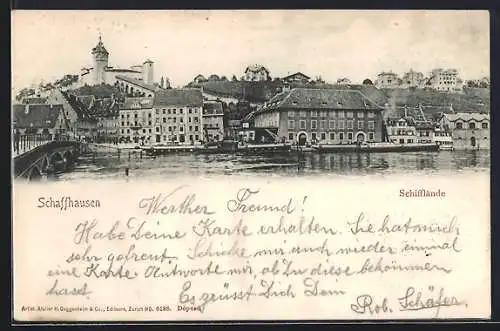 Schaffhausen
Schifflände
Werther Freund!
Habe Deine Karte erhalten. Sie hat mich
sehr gefreut. Schicke mir auch wieder einmal
eine Karte. Antworte mir, ob Du diese bekommen
hast.
Es grüsst Dich Dein
Rob. Schäfer.
Artist. Atelier H. Guggenheim & Co., Editeurs, Zurich No. 6185. Déposé